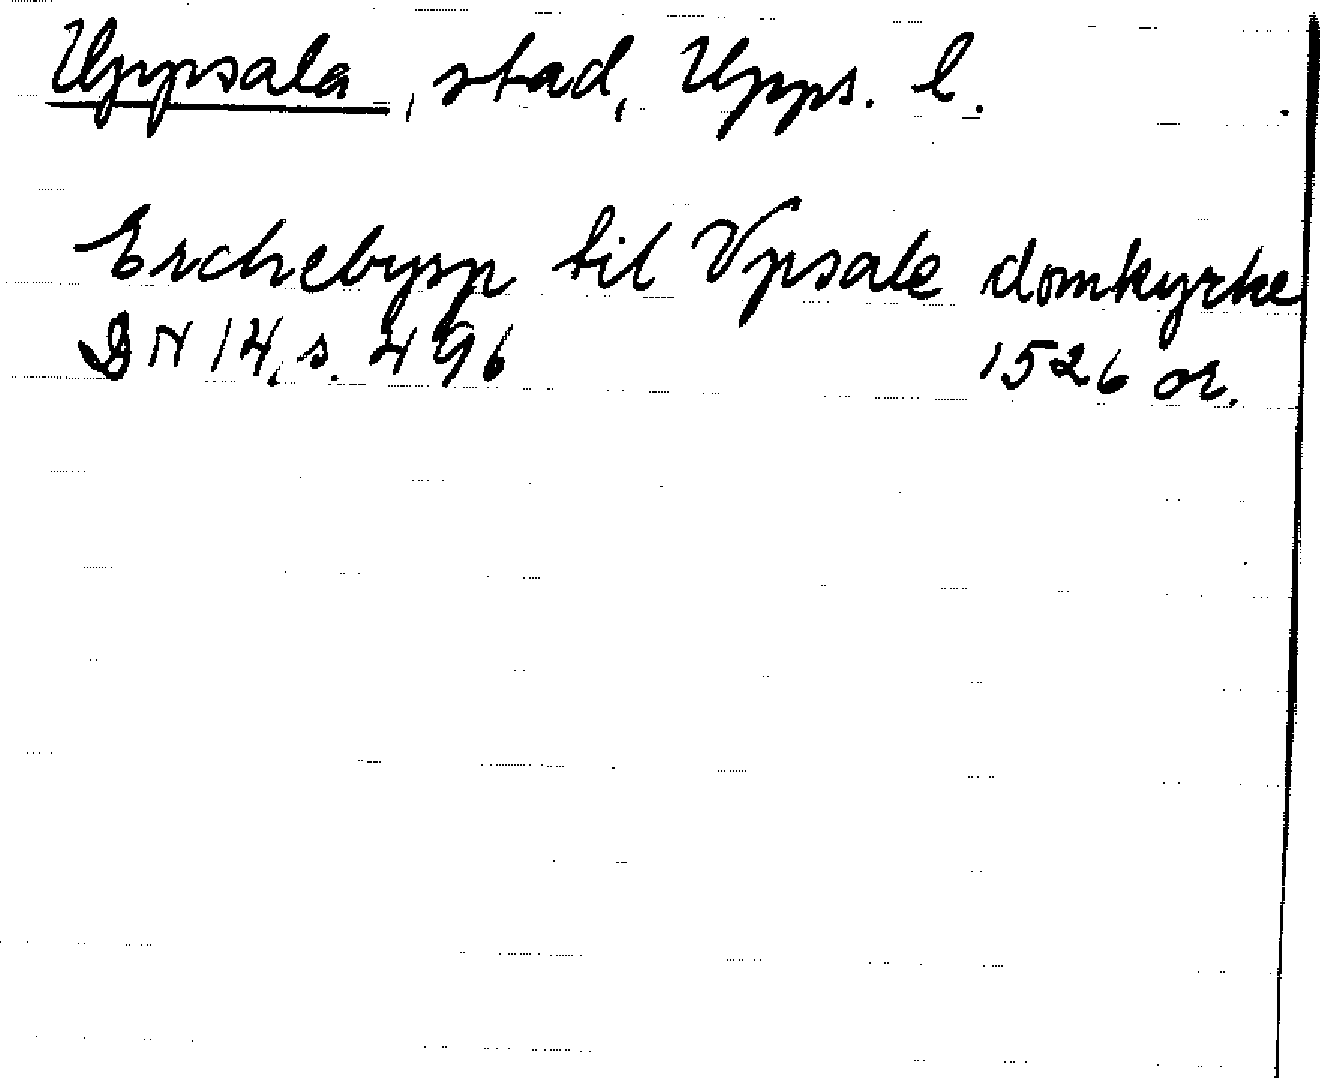 Uppsala, stad, Upps. l.
Erchebysp til Vpsale domkyrke
DN 14, s. 496 1526 or.